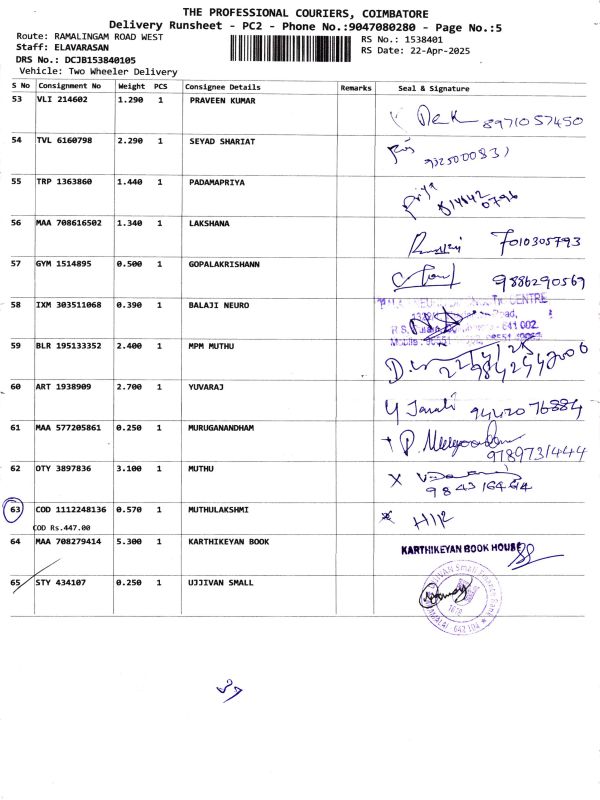 THE PROFESSIONAL COURIERS, COIMBATORE
Delivery Runsheet - PC2 - Phone No.:9047080280 - Page No.:5
Route: RAMALINGAM ROAD WEST
Staff: ELAVARASAN
DRS No.: DCJB153840105
Vehicle: Two Wheeler Delivery
RS No.: 1538401
RS Date: 22-Apr-2025
S No Consignment No Weight PCS Consignee Details Remarks Seal & Signature
53 VLI 214602 1.290 1 PRAVEEN KUMAR 8971057450
54 TVL 6160798 2.290 1 SEYAD SHARIAT
55 TRP 1363860 1.440 1 PADAMAPRIYA Priya
56 MAA 708616502 1.340 1 LAKSHANA 7010305793
57 GYM 1514895 0.500 1 GOPALAKRISHANN 9886290569
58 IXM 303511068 0.390 1 BALAJI NEURO CENTRE
59 BLR 195133352 2.400 1 MPM MUTHU
60 ART 1938909 2.700 1 YUVARAJ 9442076884
61 MAA 577205861 0.250 1 MURUGANANDHAM 9789731444
62 OTY 3897836 3.100 1 MUTHU
63 COD 1112248136 0.570 1 MUTHULAKSHMI
COD Rs.447.00
64 MAA 708279414 5.300 1 KARTHIKEYAN BOOK KARTHIKEYAN BOOK HOUSE
65 STY 434107 0.250 1 UJJIVAN SMALL